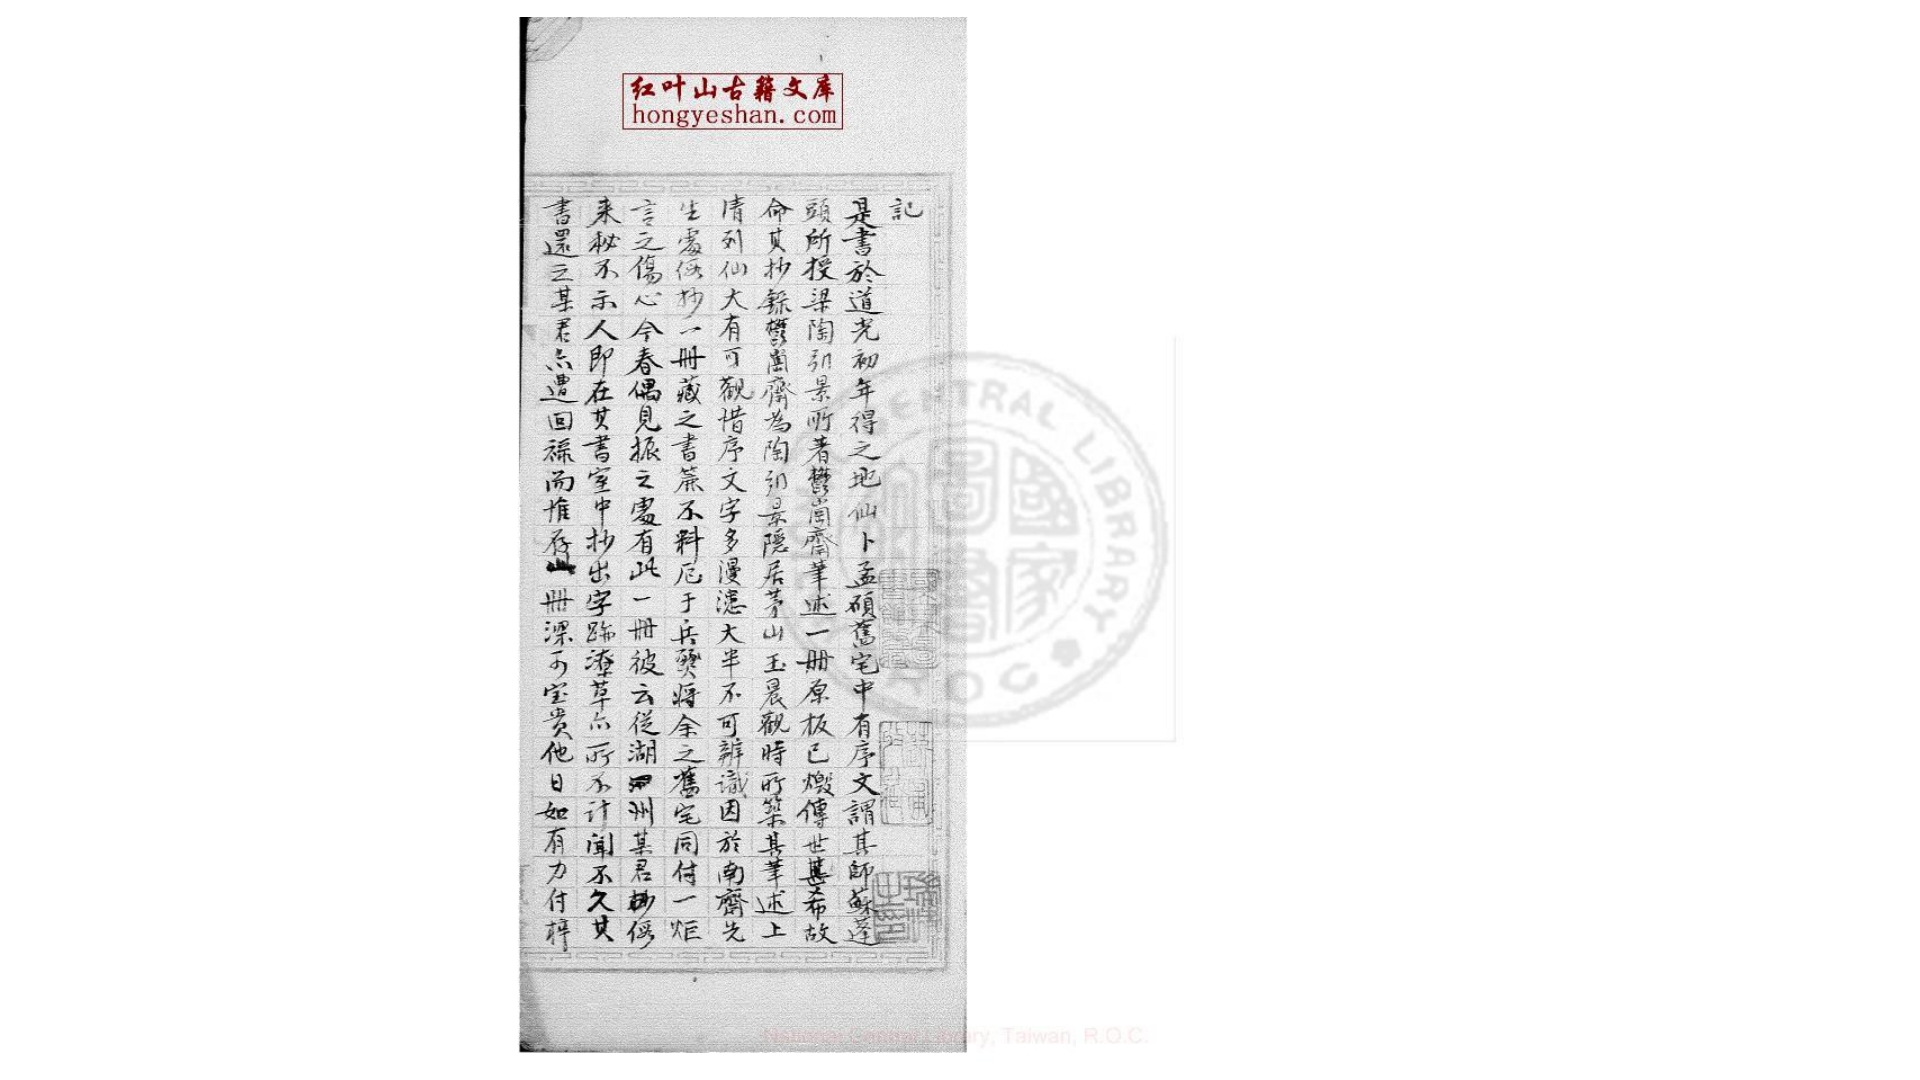 红叶山古籍文库
hongyeshan.com
記
是書於道光初年得之地仙卜孟碩舊宅中有序文謂其師蘇蓬
頭所授梁陶弘景所著鬱崗齋筆述一冊原板已燬傳世甚希故
命其抄錄鬱崗齋為陶弘景隱居茅山玉晨觀時所築其筆述上
清列仙大有可觀惜序文字多漫漶大半不可辨識因於南齋先
生處假抄一冊藏之書簏不料厄于兵燹將余之舊宅同付一炬
言之傷心今春偶見振之處有此一冊彼云從湖州某君抄假
来秘不示人即在其書室中抄出字跡潦草亦所不計聞不久其
書還之某君亦遭回祿而惟存此一冊深可宝贵他日如有力付梓
CENTRAL LIBRARY
R.O.C.
國家圖書
National Central Library, Taiwan, R.O.C.